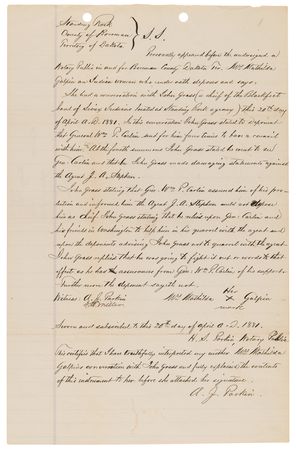 Standing Rock
County of Boreman
Territory of Dakota } S.S.
Personally appeared before the undersigned, a
Notary Public in and for Boreman County Dakota Ter. Mrs Mathilda
Galpin an Indian woman who under oath deposes and says.
She had a conversation with John Grass (a chief of the Blackfoot
band of Sioux Indians located at Standing Rock agency) this 20th day
of april A.D. 1881. In the conversation John Grass stated to deponent
that General Wm P. Carlin sent for him four times to have a council
with him. At the fourth summons John Grass said he went to see
Gen: Carlin and that he John Grass made damaging statements against
the Agent J. A. Stephan.
John Grass stating that Gen: Wm P. Carlin assured him of his pro-
tection and informed him the Agent J. A. Stephan could not depose
him as chief John Grass stating that he relied upon Gen: Carlin and
his friends in Washington to help him in his quarrel with the agent and
upon the deponents advising John Grass not to quarrel with the agent
John Grass replied that he was going to fight it out or words to that
effect as he has assurances from Gen: Wm P. Carlin of his support.
Further more the deponent sayeth not.
Witness: A. J. Parkin Her
Mrs Mathilda X Galpin
mark
Sworn and subscribed to this 20th day of april A.D. 1881.
H. S. Parkin, Notary Public
This certifies that I have truthfully interpreted my mother Mrs Mathilda
Galpins conversation with John Grass and fully explained the contents
of this instrument to her before she attached her signature.
A. J. Parkin.